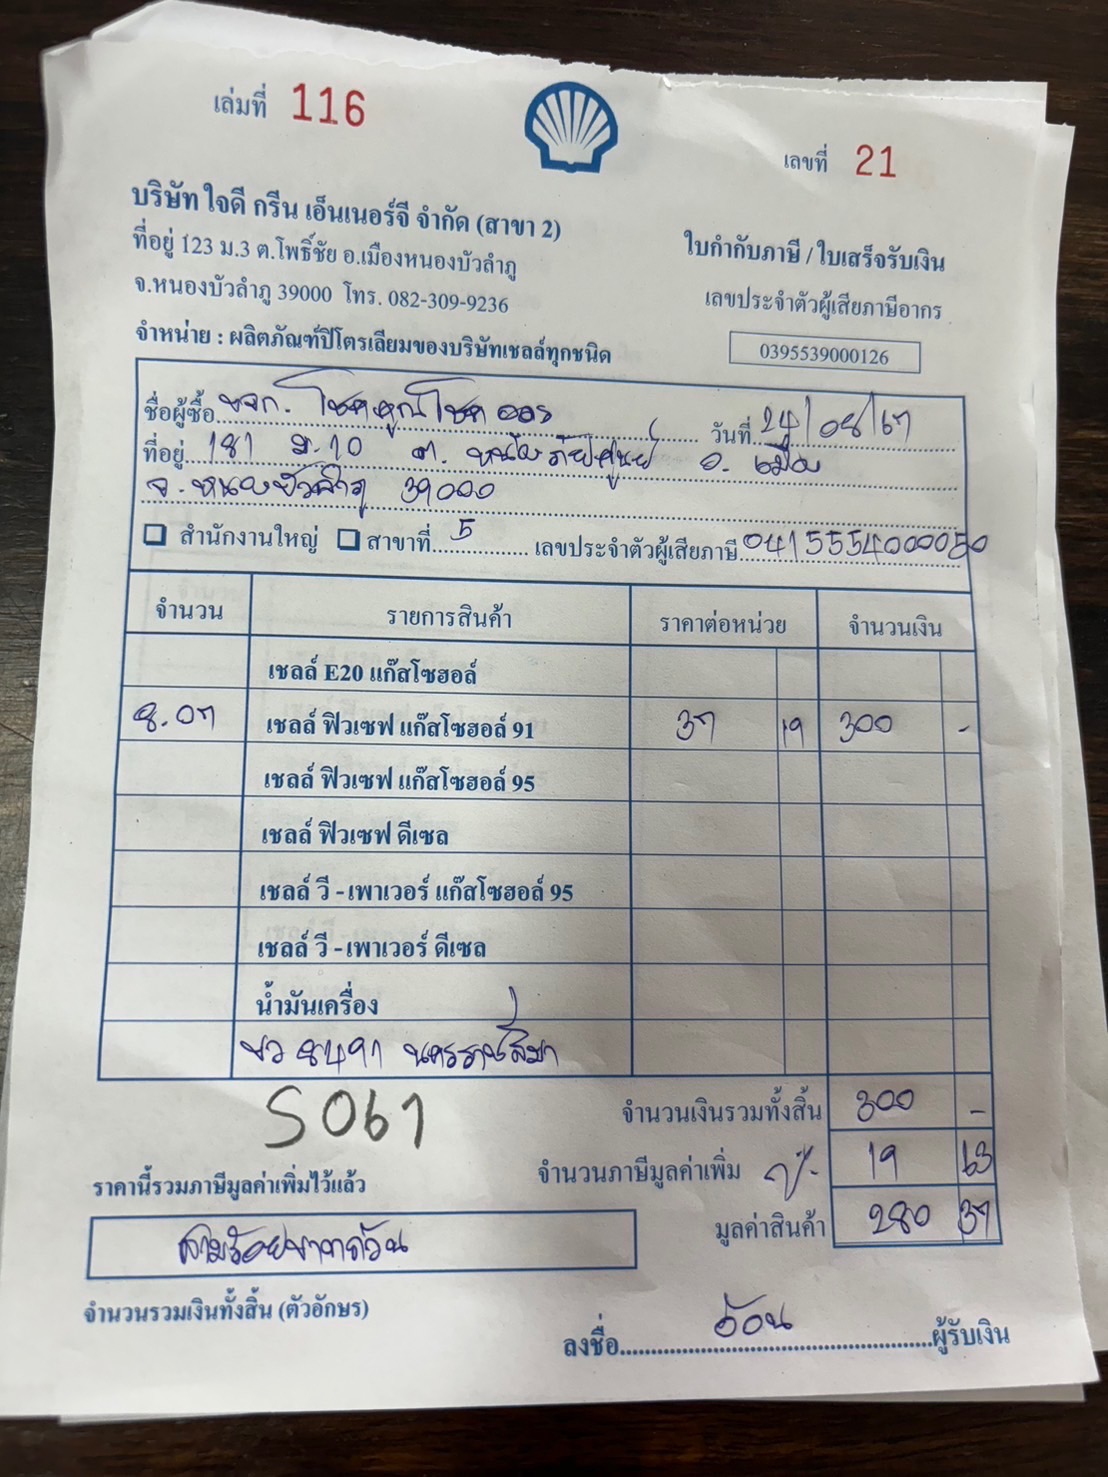 เล่มที่ 116
เลขที่ 21
บริษัท ใจดี กรีน เอ็นเนอร์จี จำกัด (สาขา 2)
ที่อยู่ 123 ม.3 ต.โพธิ์ชัย อ.เมืองหนองบัวลำภู
จ.หนองบัวลำภู 39000 โทร. 082-309-9236
จำหน่าย : ผลิตภัณฑ์ปิโตรเลียมของบริษัทเชลล์ทุกชนิด
ใบกำกับภาษี / ใบเสร็จรับเงิน
เลขประจำตัวผู้เสียภาษีอากร
0395539000126
ชื่อผู้ซื้อ หจก. โชคคูณโชค วันที่ 24/08/67
ที่อยู่ 181 ม.10 ต. หนองภัยศูนย์ อ. เมือง
จ. หนองบัวลำภู 39000
สำนักงานใหญ่ สาขาที่ 5 เลขประจำตัวผู้เสียภาษี 0415554000050
จำนวน รายการสินค้า ราคาต่อหน่วย จำนวนเงิน
เชลล์ E20 แก๊สโซฮอล์
8.07 เชลล์ ฟิวเซฟ แก๊สโซฮอล์ 91 37 19 300 -
เชลล์ ฟิวเซฟ แก๊สโซฮอล์ 95
เชลล์ ฟิวเซฟ ดีเซล
เชลล์ วี - เพาเวอร์ แก๊สโซฮอล์ 95
เชลล์ วี - เพาเวอร์ ดีเซล
น้ำมันเครื่อง
8491 นครราชสีมา
S067
จำนวนเงินรวมทั้งสิ้น 300 -
จำนวนภาษีมูลค่าเพิ่ม 7%. 19 63
มูลค่าสินค้า 280 37
ราคานี้รวมภาษีมูลค่าเพิ่มไว้แล้ว
สามร้อยบาทถ้วน
จำนวนรวมเงินทั้งสิ้น (ตัวอักษร)
ลงชื่อ ผู้รับเงิน